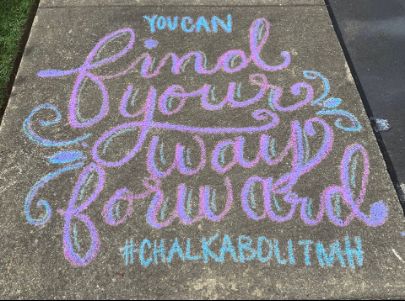 YOU CAN
find
your
way
forward
#CHALKABOUTMH